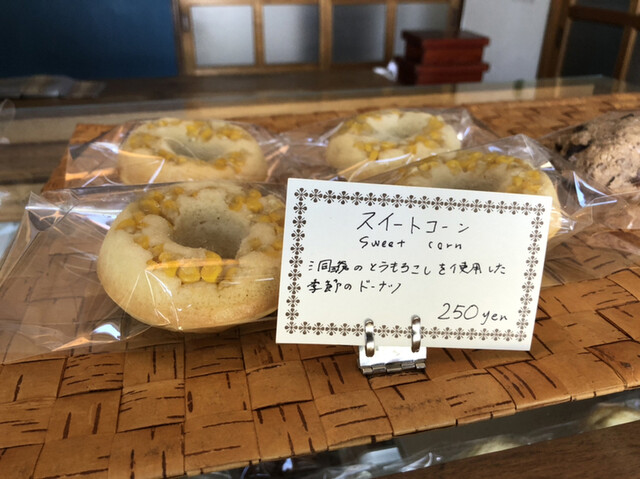 スイートコーン
Sweet corn
洞爺のとうもろこしを使用した
季節のドーナツ
250yen